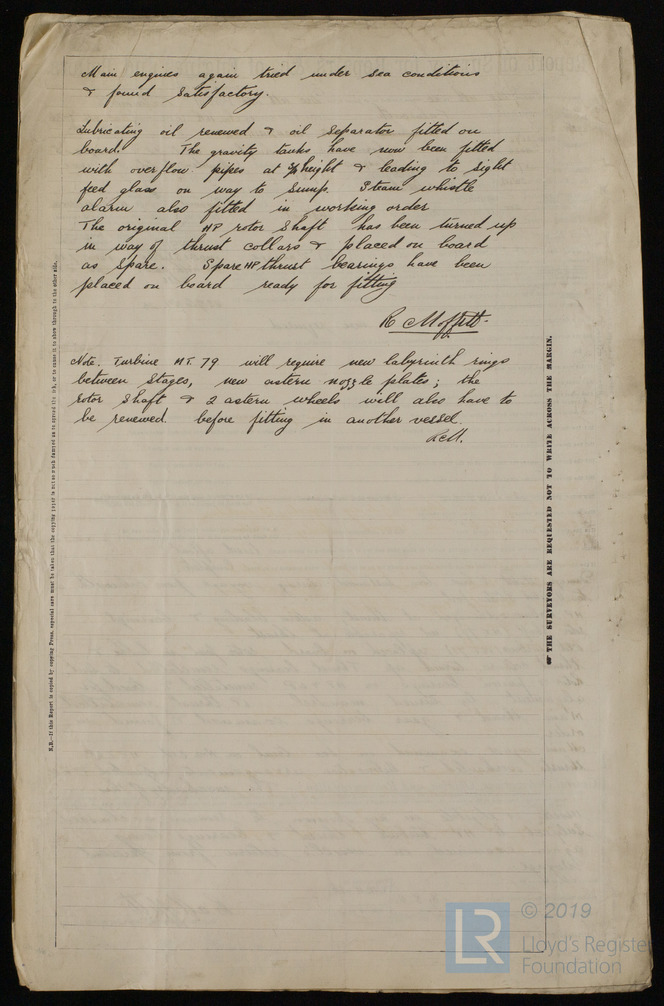 Main engines again tried under sea conditions
& found satisfactory.
Lubricating oil renewed & oil separator fitted on
board. The gravity tanks have now been fitted
with overflow pipes at height & leading to sight
feed glass on way to sump. Steam whistle
alarm also fitted in working order
The original HP rotor shaft has been turned up
in way of thrust collars & placed on board
as spare. Spare HP thrust bearings have been
placed on board ready for fitting
R Moffett.
Note. Turbine No. 79 will require new labyrinth rings
between stages, new astern nozzle plates; the
rotor shaft & 2 astern wheels will also have to
be renewed before fitting in another vessel.
RM.
N.B.—If this Report is copied by copying Press, especial care must be taken that the copying paper is not so much damped as to spread the ink, or to cause it to show through to the other side.
THE SURVEYORS ARE REQUESTED NOT TO WRITE ACROSS THE MARGIN.
LR
© 2019
Lloyd's Register
Foundation